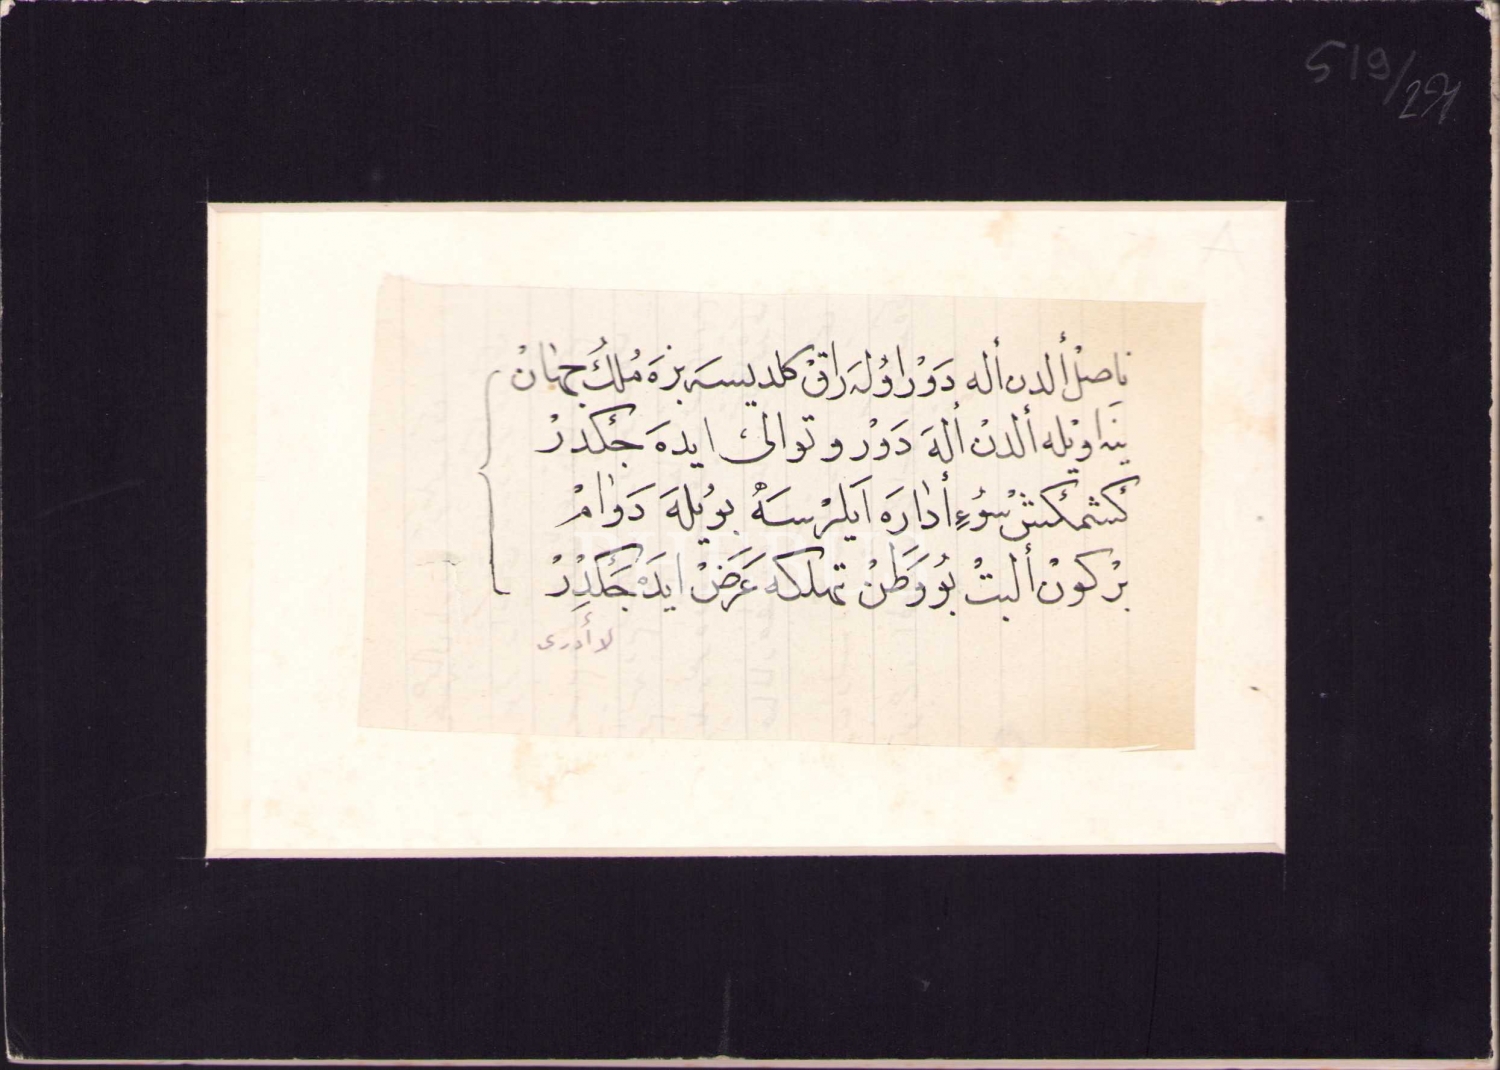 519/27
ناصل ألدن أله دَوْر اوُلَه رَاقْ كلديسه بزَه مُلكُ جهٰانْ
ينه اويْله ألدنْ ألهَ دَوْر و توالىُ ايدهَ جكدرْ
كشمكشْ سُوءِ أدارَه اَيلرْسَهْ بويُلهَ دَوٰامْ
برْ كونْ ألبتْ بُو وَطَنْ تهلكه عَرَضْ ايدَهْ جَكدِرْ
لا أدرى